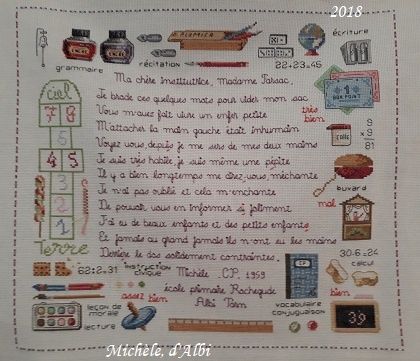 2018
PLUMIER
ENCRE
ENCRE
grammaire
récitation
22+23=45
écriture
Ma chère Institutrice, Madame Tarsac,
Je brode ces quelques mots pour vider mon sac
Vous m'avez fait vivre un enfer petite
M'attacher la main gauche était inhumain
Voyez vous depuis je me sers de mes deux mains
Je suis très habile, je suis même une pépite
Il y a bien longtemps me direz-vous, méchante
Je n'ai pas oublié et cela m'enchante
De pouvoir vous en informer si joliment
J'ai eu de beaux enfants et des petits enfants
Et jamais au grand jamais ils n'ont eu les mains
Derrière le dos solidement contraintes.
Michèle C.P. 1959
école primaire Rochegude
Albi Tarn
ciel
7 8
6
4 5
3
2
1
Terre
1
BON POINT
très bien
colle
9
x 9
81
buvard
mal
30:6=5
calcul
62:2=31
instruction civique
assez bien
leçon de morale
lecture
vocabulaire
conjugaison
bien
39
Michèle, d'Albi